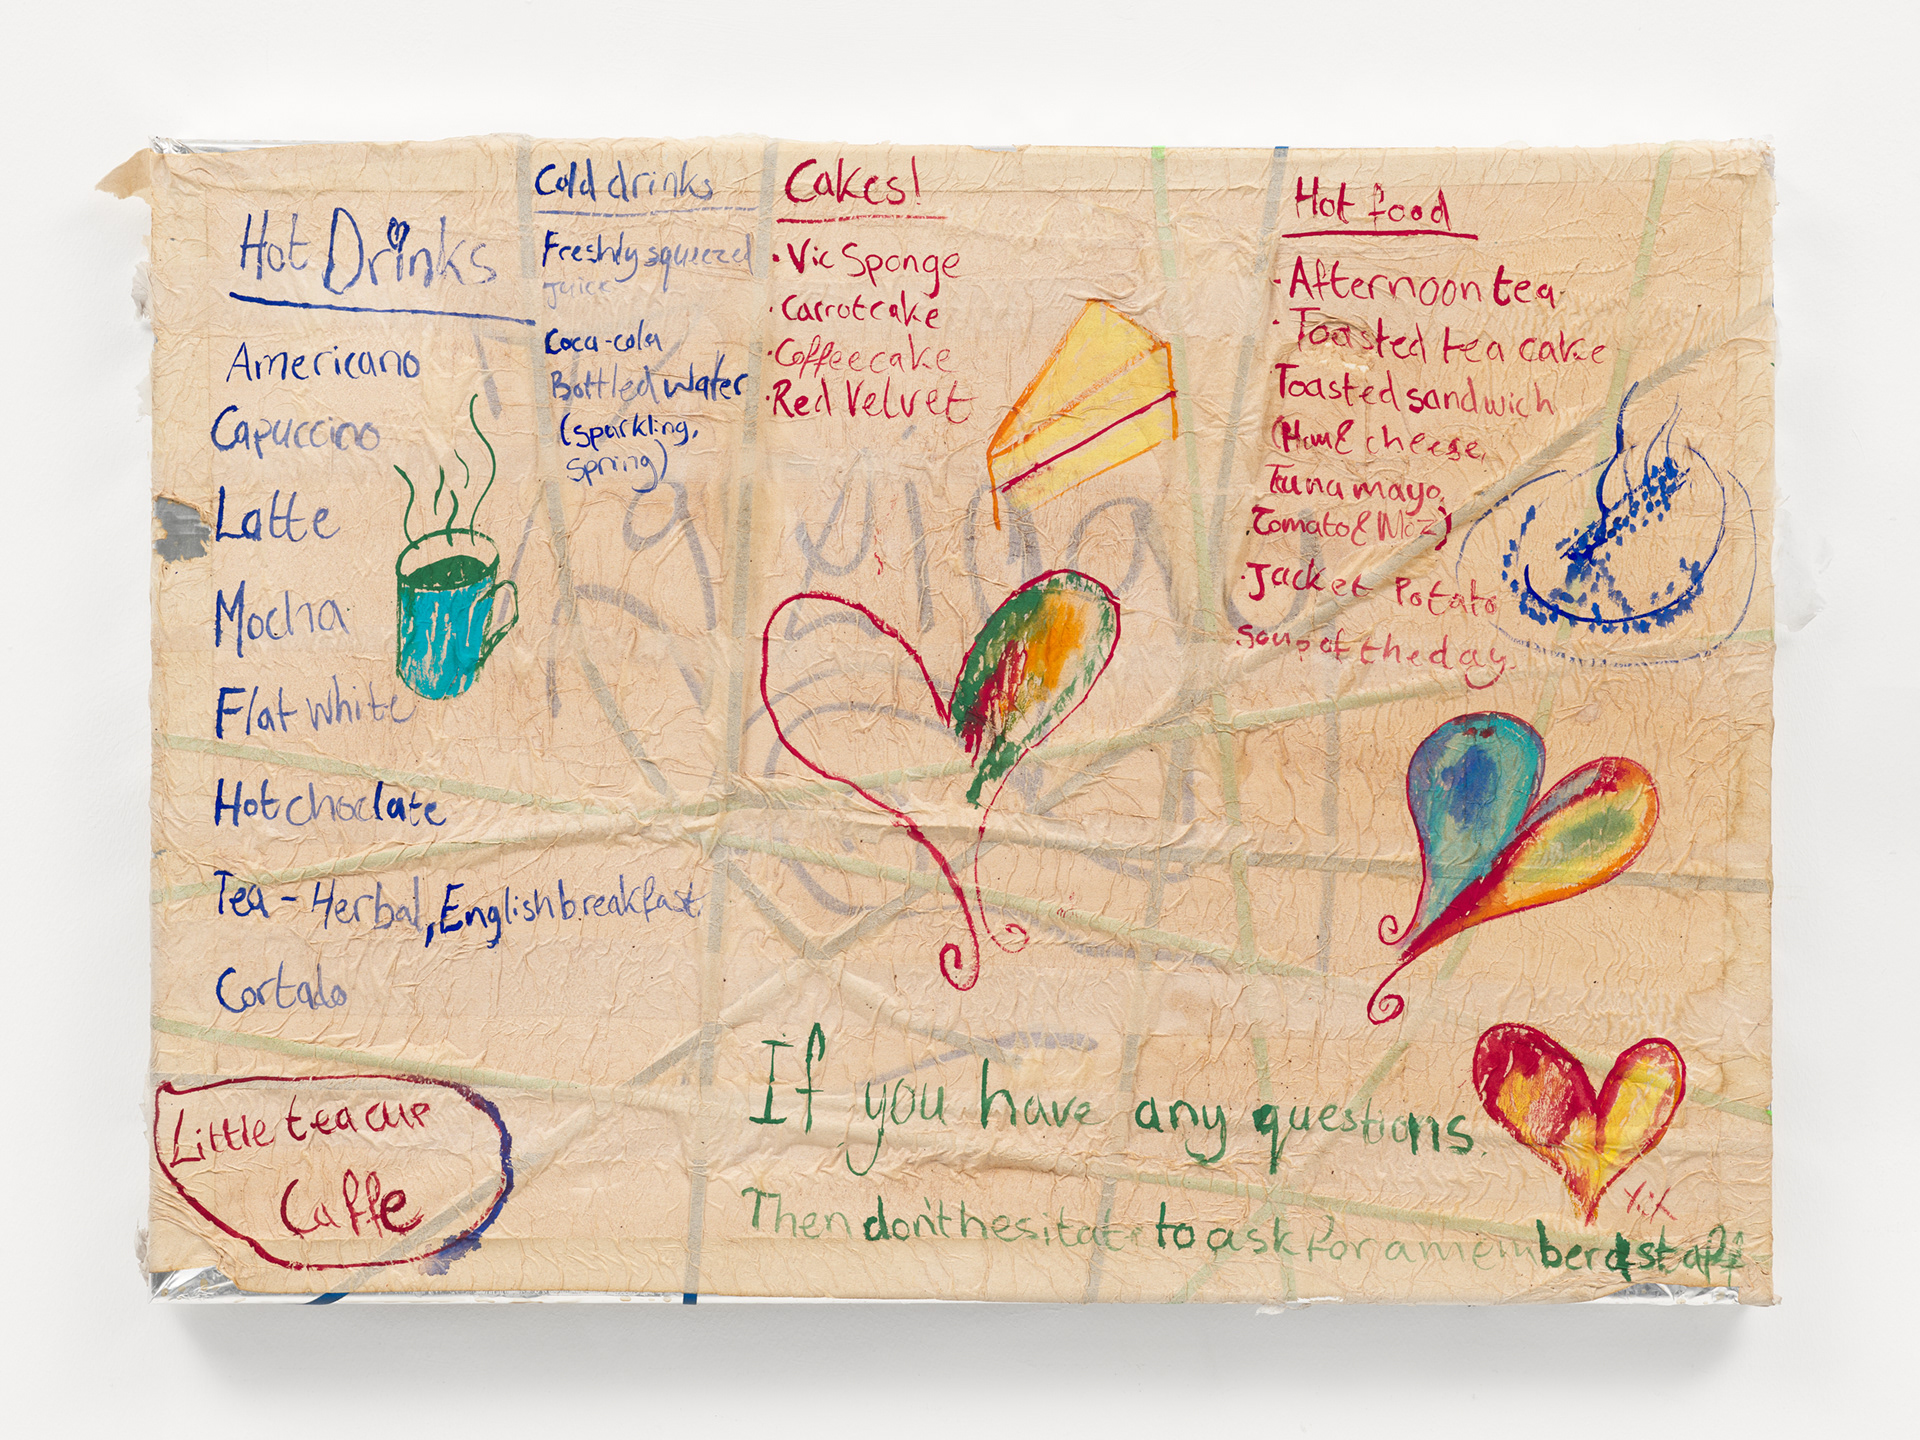 Hot Drinks
Americano
Capuccino
Latte
Mocha
Flat white
Hot choclate
Tea - Herbal, English breakfast.
Cortado
Cold drinks
Freshly squeezed
juice
Coca-cola
Bottled water
(sparkling,
spring)
Cakes!
· Vic Sponge
· Carrot cake
· Coffee cake
· Red Velvet
Hot food
· Afternoon tea
· Toasted tea cake
Toasted sandwich
(Ham & cheese,
Tuna mayo,
Tomato & Moz)
· Jacket Potato
soup of the day.
Little tea cup
Caffe
If you have any questions.
Then don't hesitate to ask for a member of staff